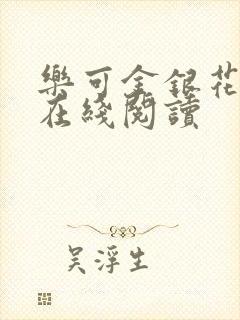 樂可金銀花
在綫閱讀
吴浮生